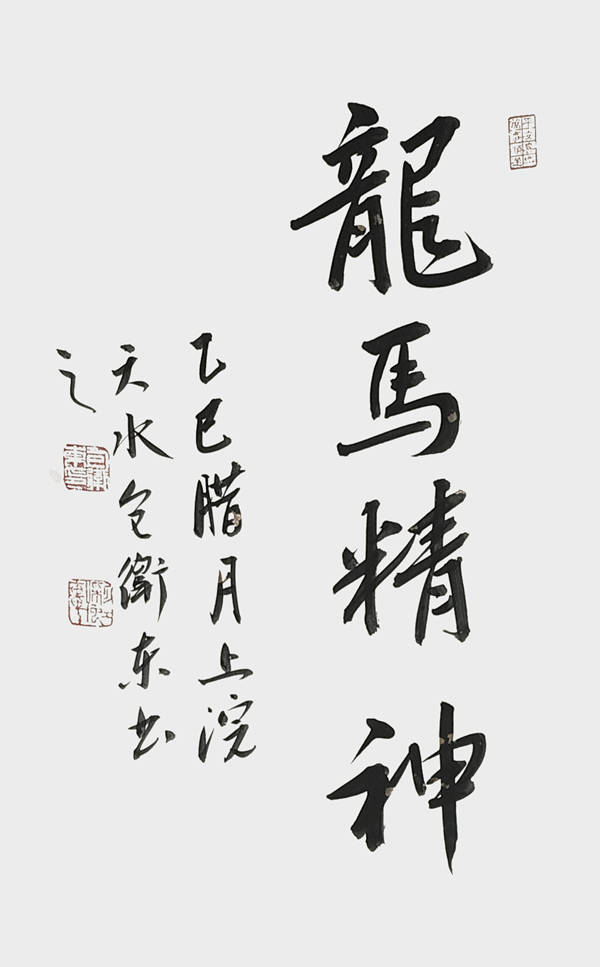 龍馬精神
乙巳腊月上浣
天水包衛东书
之